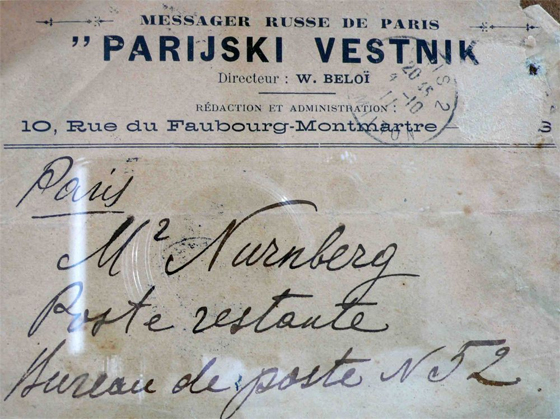 MESSAGER RUSSE DE PARIS
" PARIJSKI VESTNIK
Directeur : W. BELOÏ
RÉDACTION ET ADMINISTRATION :
10, Rue du Faubourg-Montmartre — S
Paris
Mr Nurnberg
Poste restante
Bureau de poste N 52.